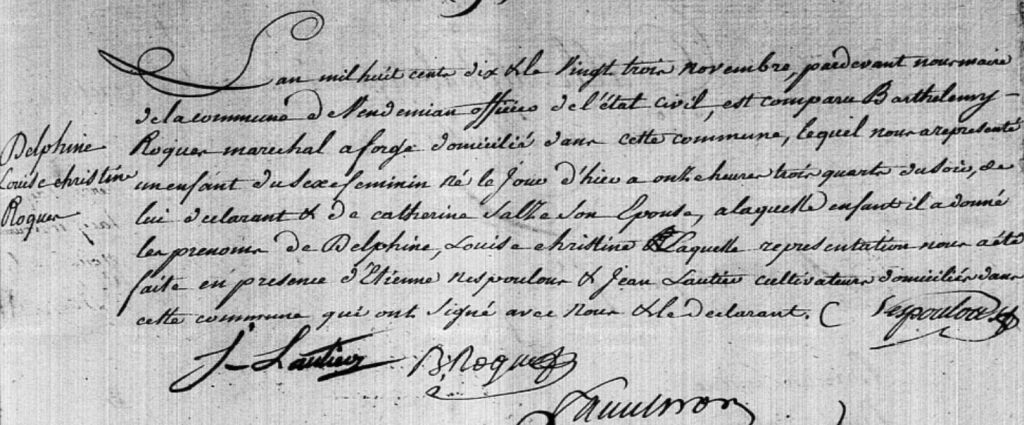 L'an mil huit cents dix & le Vingt trois novembre, pardevant nous maire
de la commune de Vendemian officier de l'état civil, est comparu Barthelemy
Roques marechal a forge domicilié dans cette commune, lequel nous a representé
un enfant du sexe feminin né le jour d'hier a onze heures trois quarts du soir, de
lui declarant & de catherine Salze son Epouse, a laquelle enfant il a donné
les prenoms de Delphine, Louise christine Laquelle representation nous a été
faite en présence d'Etienne Nespoulous & Jean Lautier cultivateurs domiciliés dans
cette commune qui ont signé avec nous & le declarant.
Delphine
Louise christine
Roques
Nespoulous
J. Lautier
B. Roques